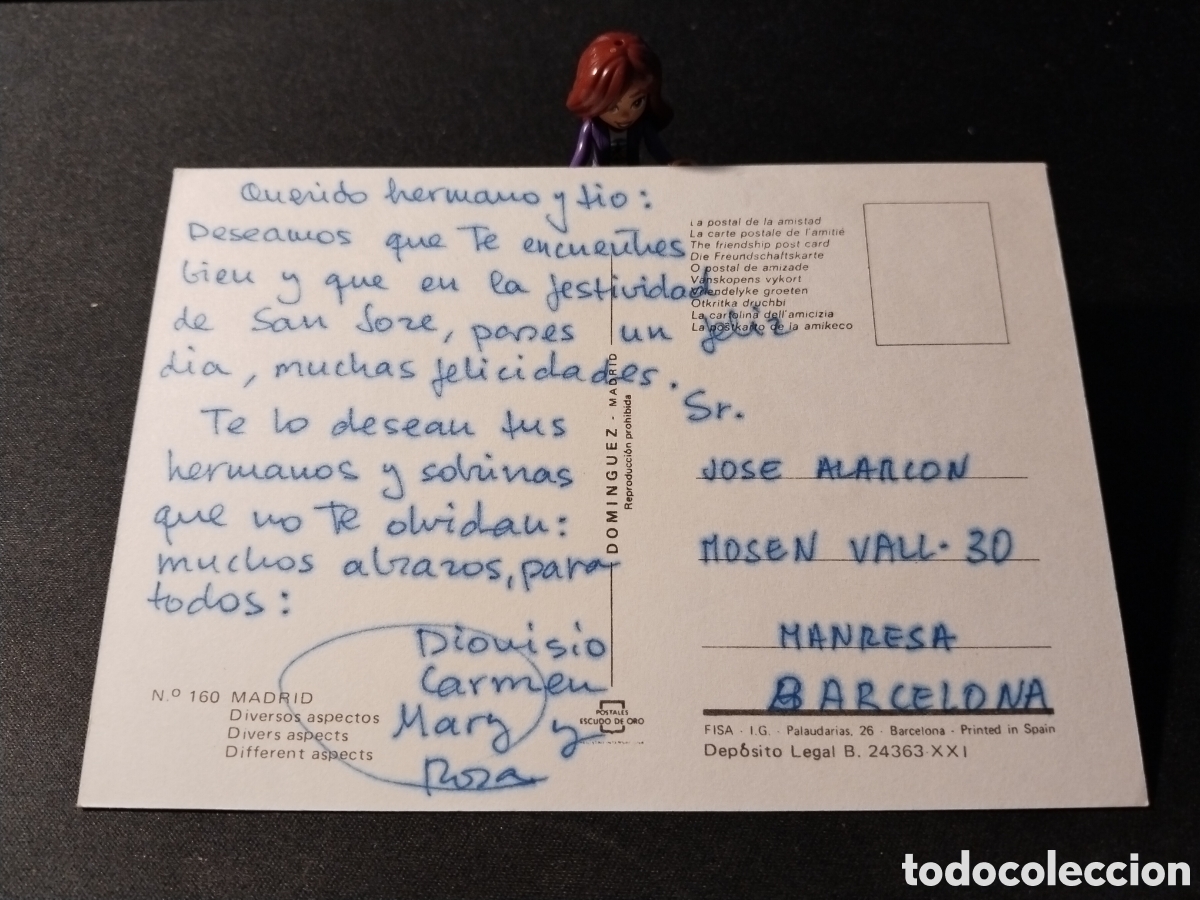 Querido hermano y tio:
Deseamos que Te encuentres
bien y que en la festividad
de San Jose, pases un feliz
dia, muchas felicidades.
Te lo desean tus
hermanos y sobrinas
que no Te olvidan:
muchos abrazos, para
todos:
Dionisio
Carmen
Mary y
Rosa
Nº 160 MADRID
Diversos aspectos
Divers aspects
Different aspects
DOMINGUEZ - MADRID
Reproducción prohibida
POSTALES
ESCUDO DE ORO
La postal de la amistad
La carte postale de l'amitié
The friendship post card
Die Freundschaftskarte
O postal de amizade
Vanskopens vykort
Vriendelyke groeten
Otkritka druchbi
La cartolina dell'amicizia
La postkarto de la amikeco
Sr.
JOSE ALARCON
MOSEN VALL - 30
MANRESA
BARCELONA
FISA - I.G. - Palaudarias, 26 - Barcelona - Printed in Spain
Depósito Legal B. 24363-XXI
todocoleccion